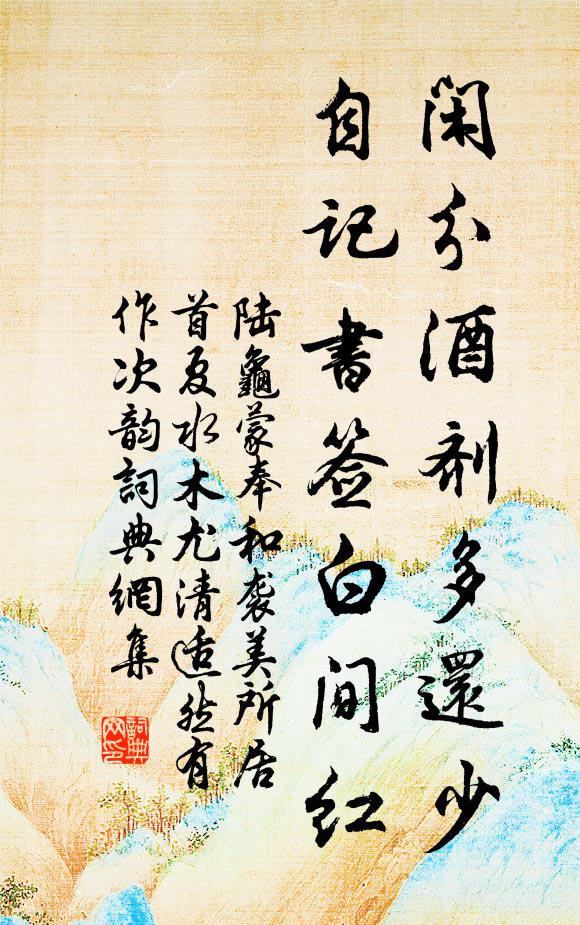 闲分酒剂多還少
自记書签白间红
陆龜蒙奉和袭美所居
首夏水木尤清适然有
作次韵詞典網集
詞典
网印